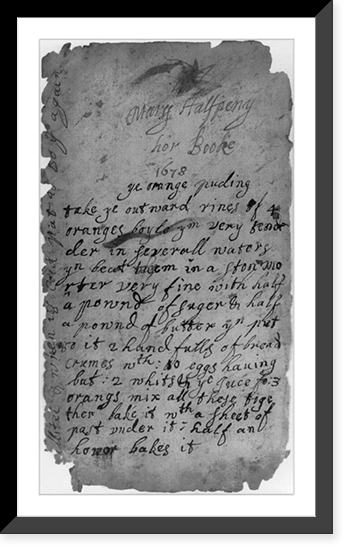 Mary Halfpeny
hor Booke
1678
ye orange puding
take ye outward rines of 4
oranges boyle ym very tend
der in severall waters
yn beat them in a ston mo
rter very fine with half
a pownd of suger & half
a pownd of butter yn put
to it 2 handfulls of bread
crumes wth: 10 eggs having
but: 2 whits & ye juce of: 3
orangs mix all these toge
ther bake it wth a sheet of
past vnder it - half an
howor bakes it